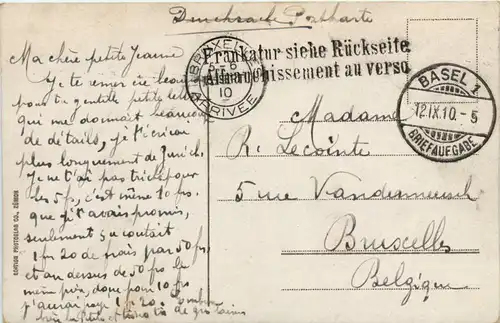 Drucksache Postkarte
Ma chère petite Jeanne
Je te remercie beaucoup
pour ta gentille petite lettre
qui me donnait beaucoup
de détails, je t'écrirai
plus longuement de Zurich.
Je ne t'ai pas triché pour
les 5 fs, c'est même 10 frs.
que je t'avais promis,
seulement ça coûtait
1 fr 20 de frais par 50 frs,
et au dessus de 50 frs le
même prix, donc pour 10 frs
j'aurai payé 1 fr 20.
BRUXELLES
5-6
10
ARRIVEE
Frankatur siehe Rückseite.
Affranchissement au verso
BASEL 1
12.IX.10.-5
BRIEFAUFGABE
Madame
R. Lecointe
5 rue Vandermeersch
Bruxelles
Belgique
EDITION PHOTOGLOB CO., ZÜRICH